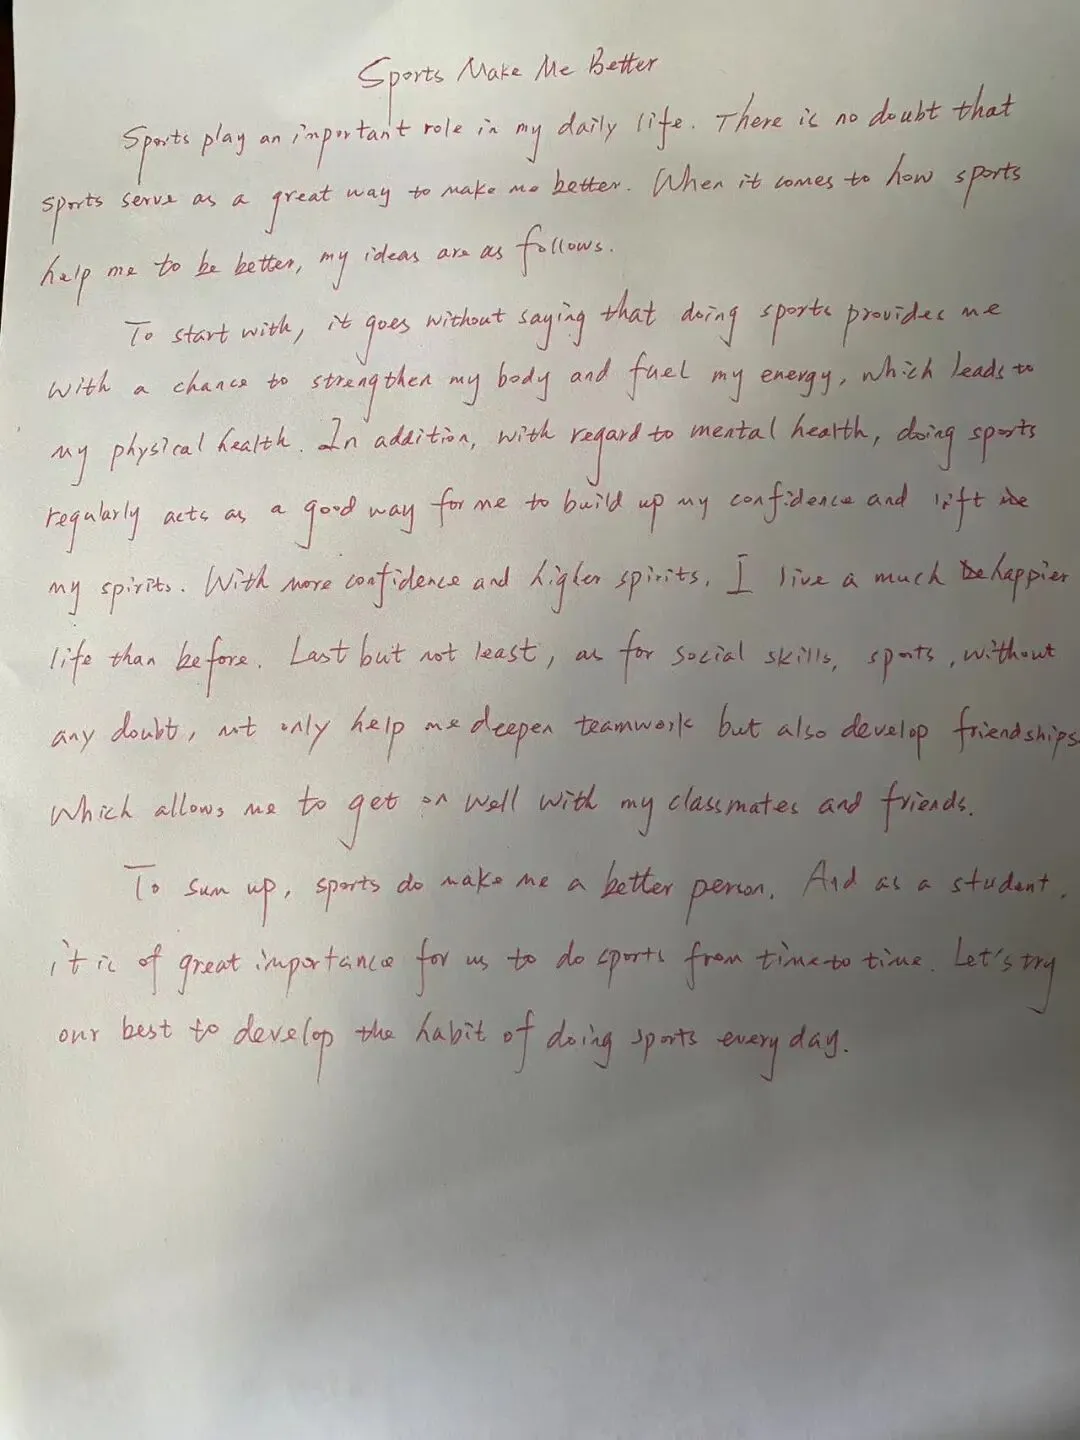 Sports Make Me Better
Sports play an important role in my daily life. There is no doubt that
sports serve as a great way to make me better. When it comes to how sports
help me to be better, my ideas are as follows.
To start with, it goes without saying that doing sports provides me
with a chance to strengthen my body and fuel my energy, which leads to
my physical health. In addition, with regard to mental health, doing sports
regularly acts as a good way for me to build up my confidence and lift
my spirits. With more confidence and higher spirits, I live a much happier
life than before. Last but not least, as for social skills, sports, without
any doubt, not only help me deepen teamwork but also develop friendships
which allows me to get on well with my classmates and friends.
To sum up, sports do make me a better person. And as a student,
it is of great importance for us to do sports from time to time. Let's try
our best to develop the habit of doing sports every day.